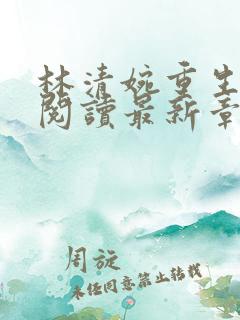 林清婉重生
閱讀最新章
周旋
未經同意禁止轉載